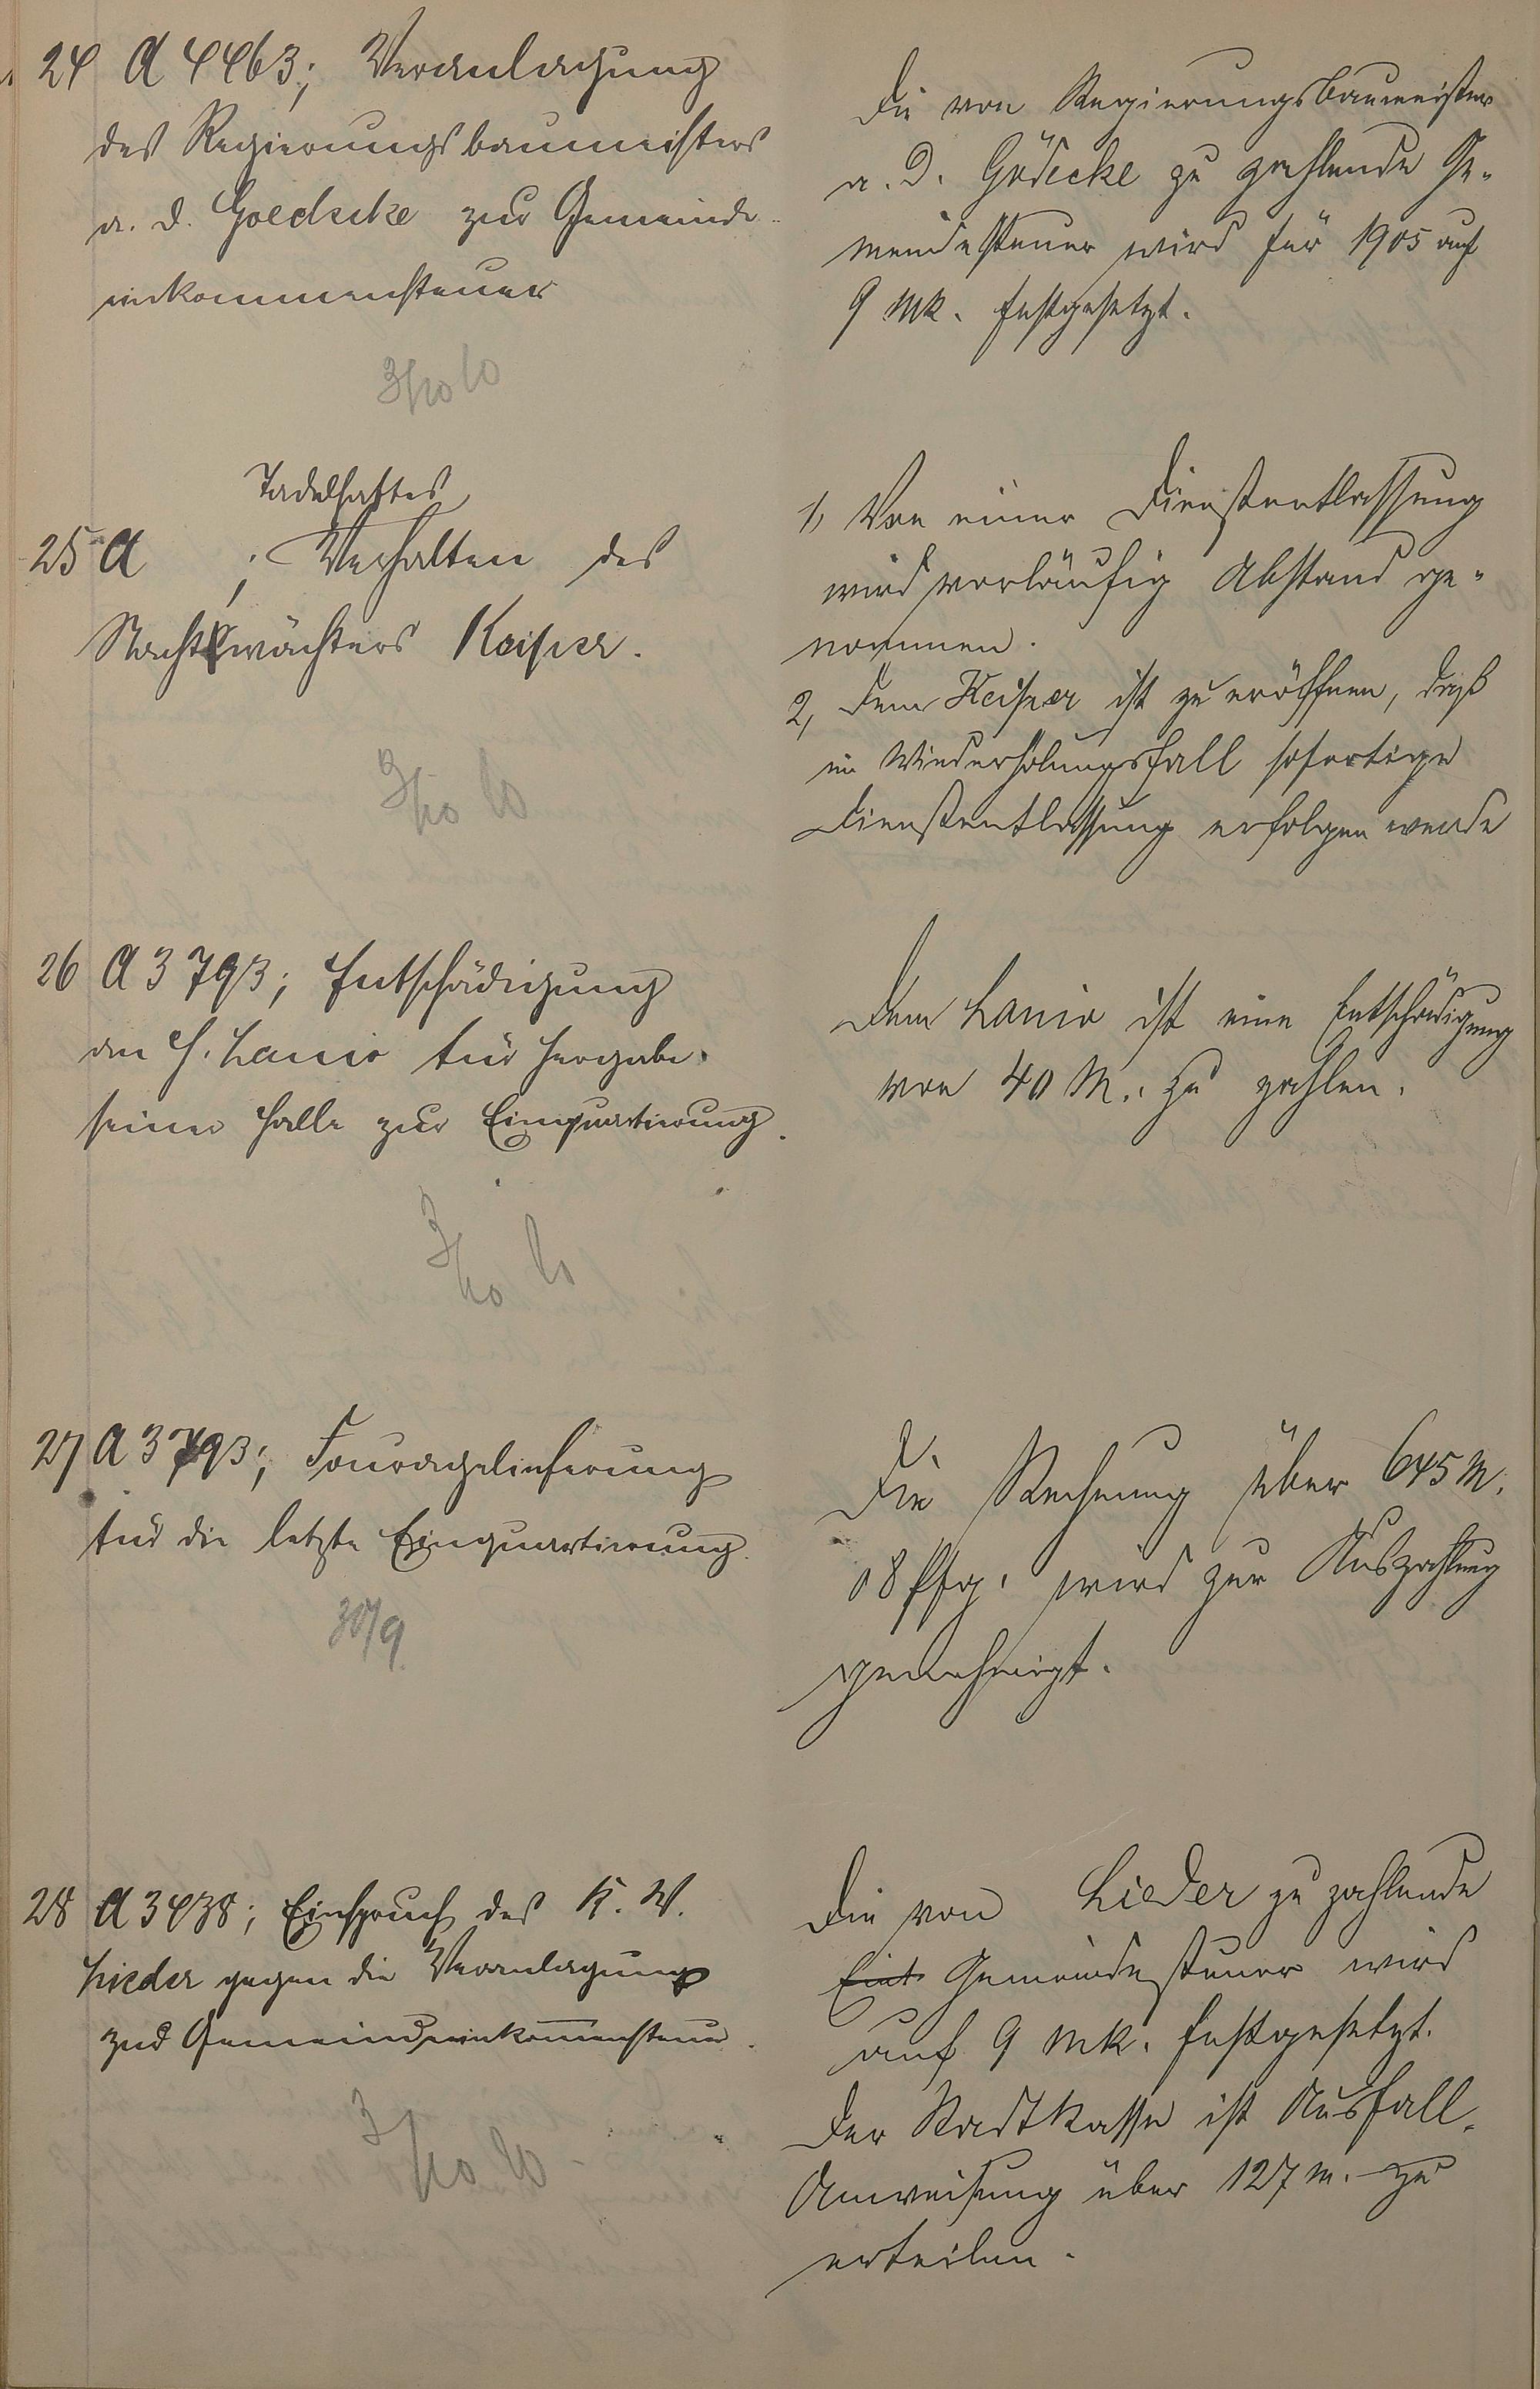 24 A 4463; Veranlagung
des Regierungsbaumeisters
a. D. Goedecke zur Gemeinde-
einkommensteuer
3/10 10
Die von Regierungsbaumeister
a. D. Gödecke zu zahlende Ge-
meindesteuer wird für 1905 auf
9 Mk. festgesetzt.
Tadelhaftes
25 A ; Verhalten des
Nachtwächters Keiser.
3/10
1, Von einer Dienstentlassung
wird vorläufig Abstand ge-
nommen.
2, Dem Keiser ist zu eröffnen, daß
im Wiederholungsfall sofortige
Dienstentlassung erfolgen werde
26 A 3793; Entschädigung
an H. Lanio für Hergabe
seiner Halle zur Einquartierung.
3/10
Dem Lanio ist eine Entschädigung
von 40 M. zu zahlen.
27 A 3793; Fouragelieferung
für die letzte Einquartierung.
30/9.
Die Rechnung über 645 M.
08 Pfg. wird zur Auszahlung
genehmigt.
28 A 3438; Einspruch des K. W.
Lieder gegen die Veranlagung
zur Gemeindeeinkommensteuer.
3/10
Die von Lieder zu zahlende
Eint Gemeindesteuer wird
auf 9 Mk. festgesetzt.
Der Stadtkasse ist Ausfall-
Anweisung über 127 M. zu
erteilen.